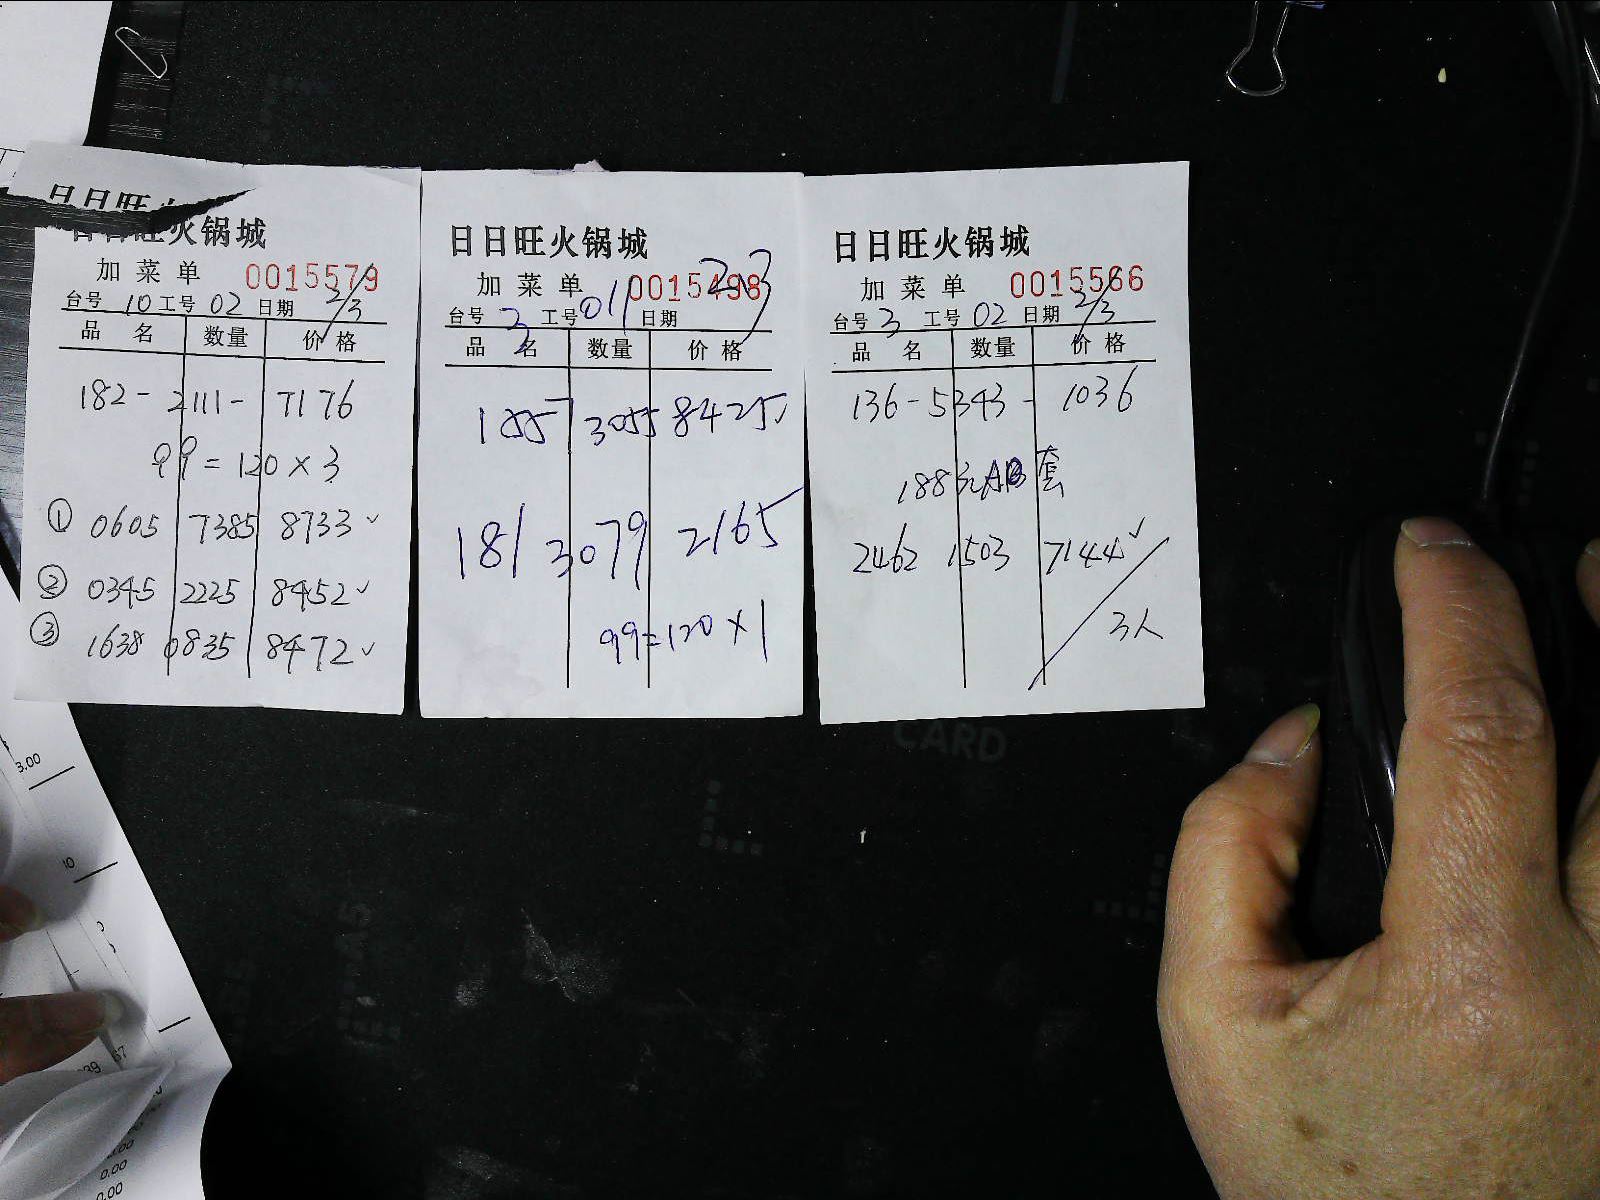 日日旺火锅城
加菜单 0015579
台号 10 工号 02 日期 2/3
品名 数量 价格
182-2111-7176
99=120×3
① 0605 7385 8733 ✓
② 0345 2225 8452 ✓
③ 1638 0835 8472 ✓
日日旺火锅城
加菜单 0015498
台号 3 工号 011 日期 2.3
品名 数量 价格
3055 8425 ✓
181 3079 2165
99=120×1
日日旺火锅城
加菜单 0015566
台号 3 工号 02 日期 2/3
品名 数量 价格
136-5343-1036
188元AB套
2462 1503 7144 ✓
3人
CARD
3.00
10
0.00
0.00